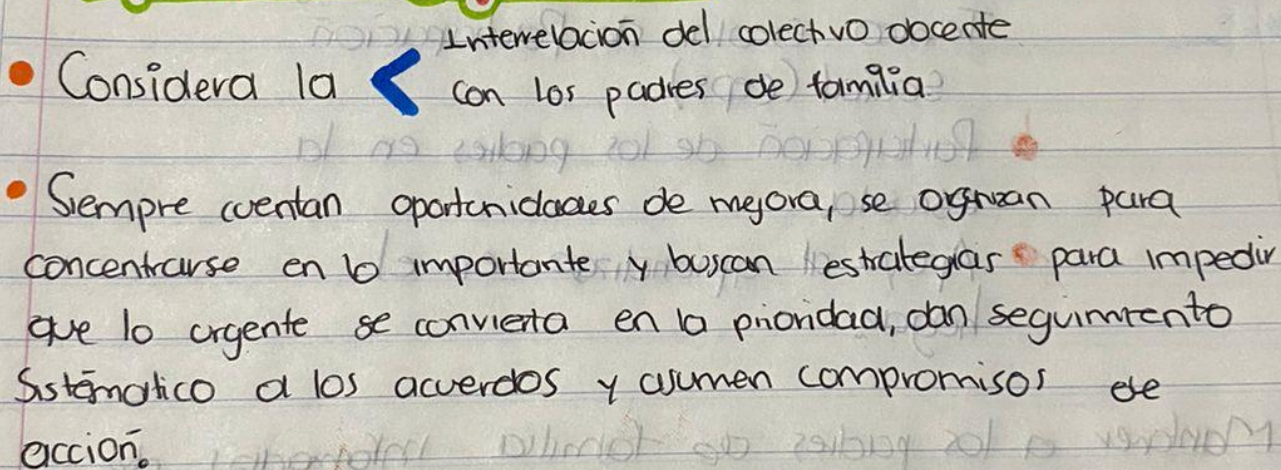 Interrelación del colectivo docente
• Considera la < con los padres de familia
• Siempre cuentan oportunidades de mejora, se orgnizan para
concentrarse en lo importante y buscan estrategias para impedir
que lo urgente se convierta en la prioridad, dan seguimiento
Sistématico a los acuerdos y asumen compromisos de
acción.